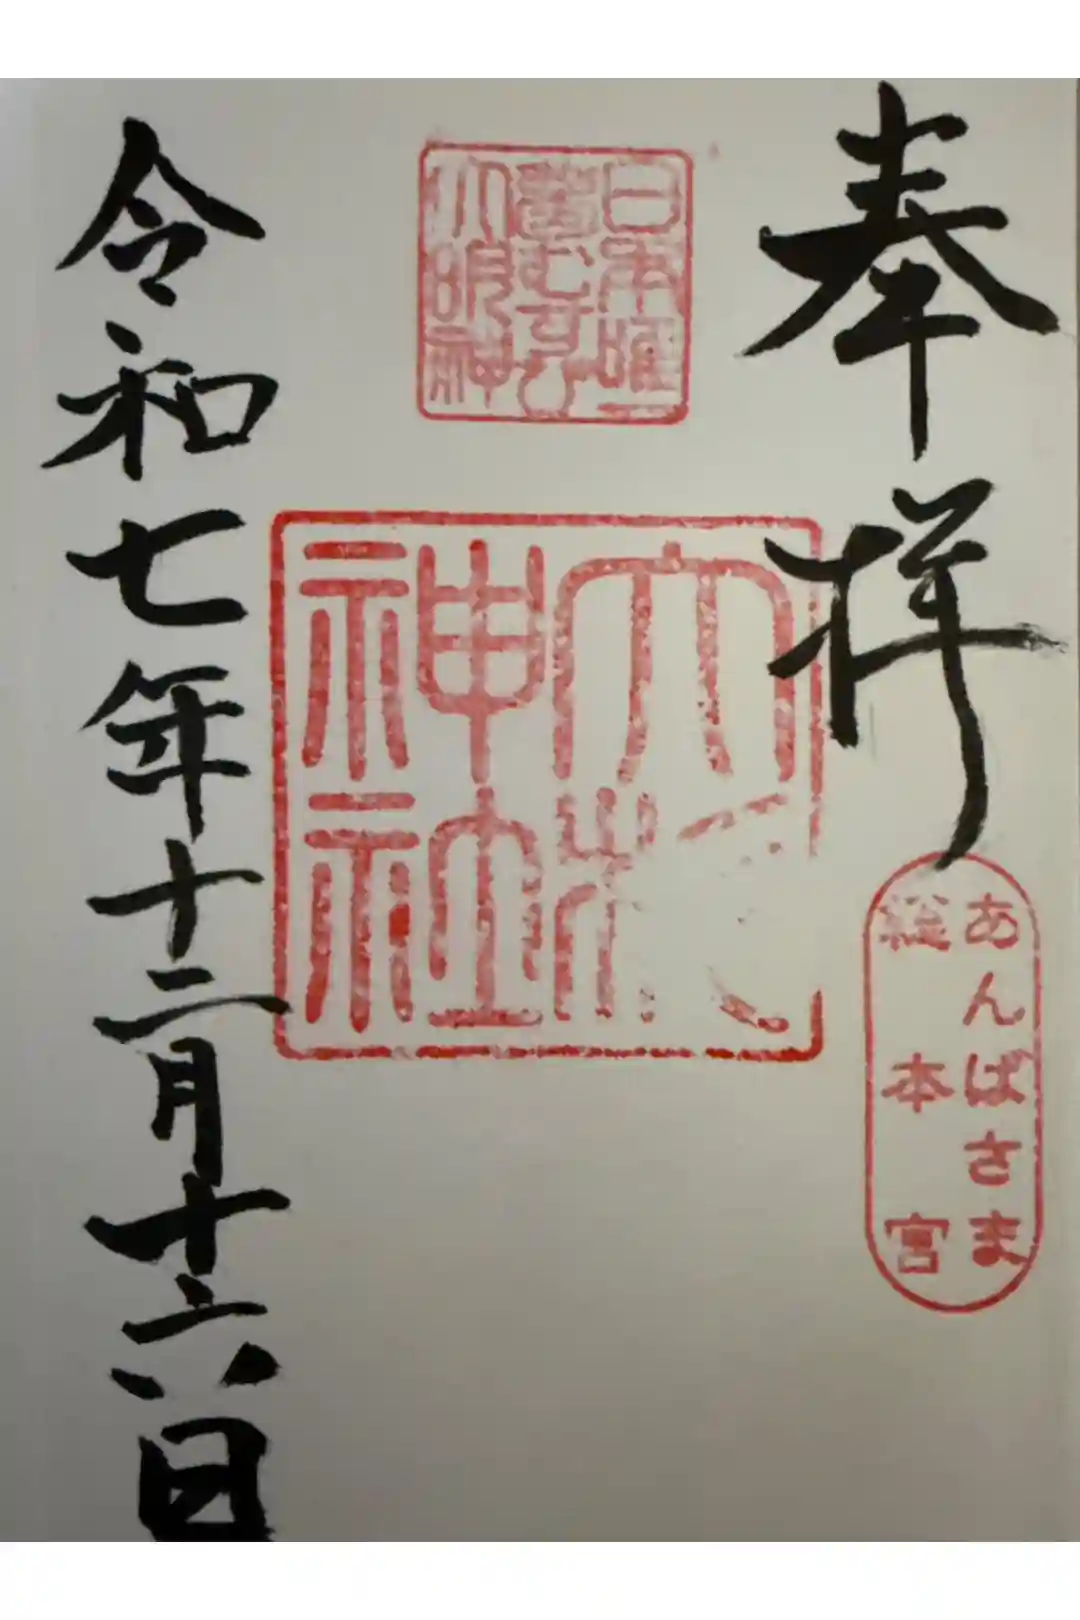 奉拝
あんばさま
総本宮
日本唯一
夢むすび
大明神
大杉
神社
令和七年十二月十六日